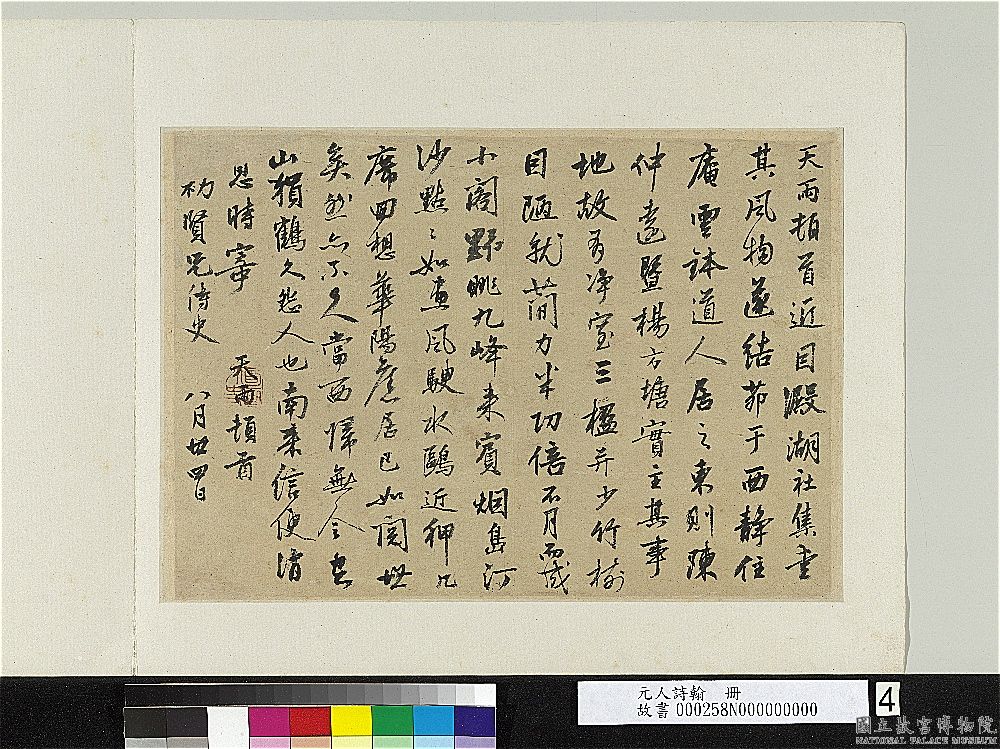 天雨頓首近自澱湖社集
其風物遂結茆于西靜住
庵雲鉢道人居之東則陳
仲遠暨楊方塘實主其事
地故有淨室三楹并少竹樹
因陋就簡力半功倍不月而成
小閣野眺九峰來賓烟島汀
沙點〻如畫風騣水鷗近狎几
席回想華陽舊居已如閱世
矣然亦不久當西歸無令
山猨鶴久怨人也南來信便請
思時寧
初賢兄侍史
天雨頓首
八月廿四日
元人詩翰 冊
故書 000258N000000000
4
國立故宮博物院
NATIONAL PALACE MUSEUM